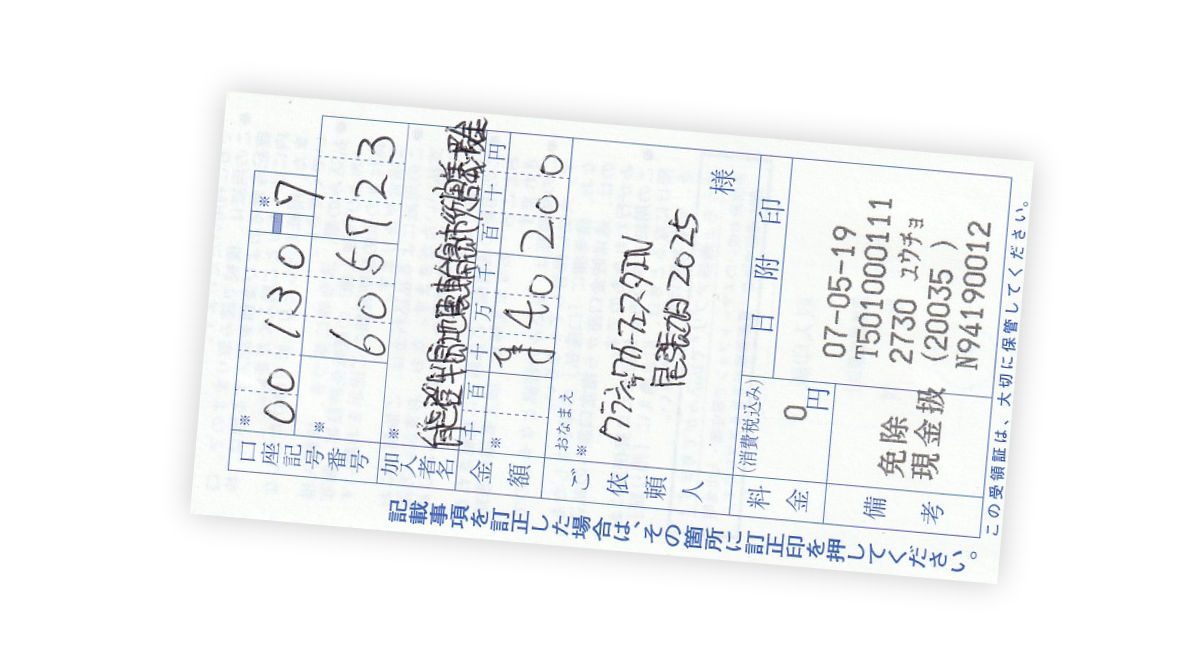 口座記号番号
※
00130
※
7
※
605723
加入者名
※
金額
千百十万千百十円
※
¥40200
ご依頼人
おなまえ
※
クラシックカーフェスタIN
尾張旭2025
様
料金
(消費税込み)
0円
日附印
07-05-19
T501000111
2730 ュウチョ
(20035 )
N94190012
備考
免除
現金扱
この受領証は、大切に保管してください。
記載事項を訂正した場合は、その箇所に訂正印を押してください。